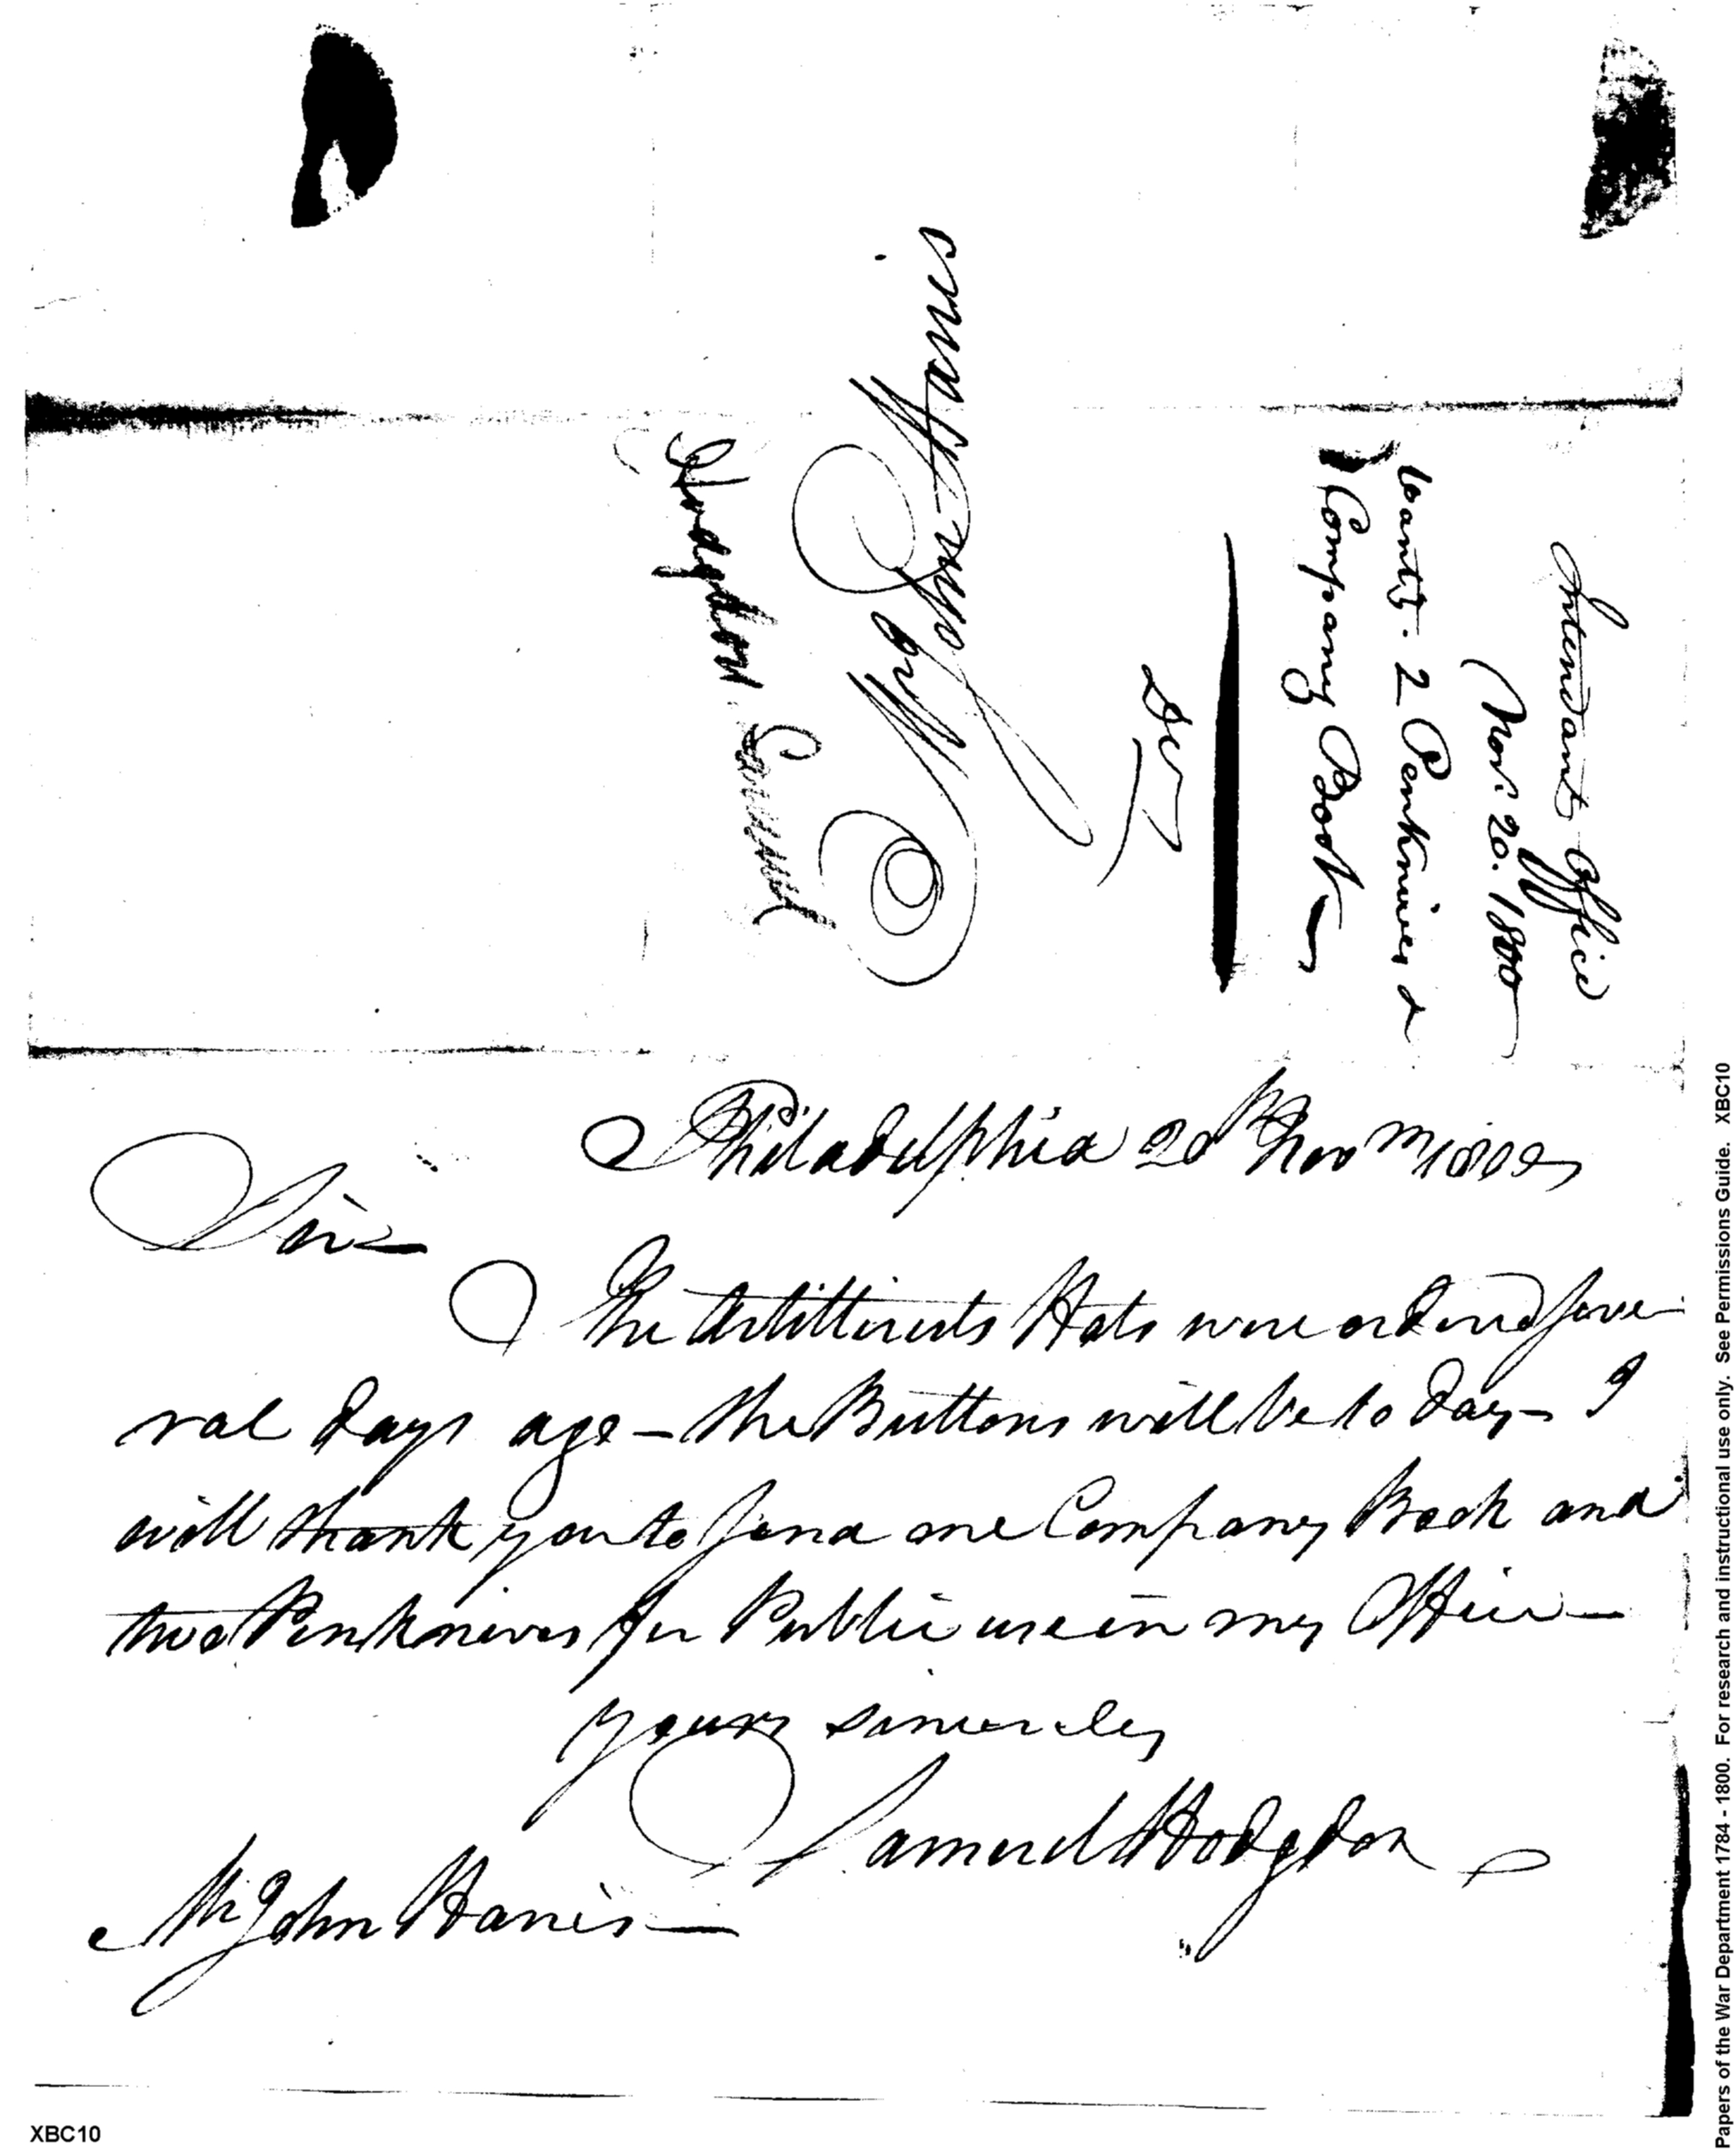 Intendants Office
Nov: 20. 1800
wants. 2 Penknives &
1 Company Book
Mr John Harris
Hodgdon Samuel
Philadelphia 20th Novm 1800
Sir
The Artillerists Hats were ordered seve
ral days ago – the Buttons will be to day – I
will thank you to send me Company Book and
two Penknives for Public use in my Office –
yours sincerely
Samuel Hodgdon
Mr John Harris –
XBC10
Papers of the War Department 1784 - 1800. For research and instructional use only. See Permissions Guide. XBC10